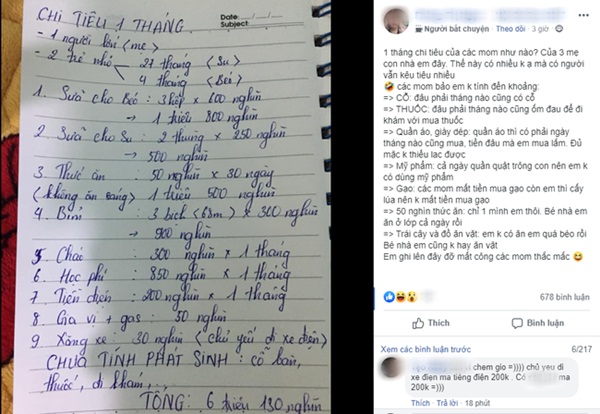 CHI TIÊU 1 THÁNG
Date: ..../..../....
Subject:
- 1 người lớn (mẹ)
- 2 trẻ nhỏ
27 tháng (Su)
4 tháng (Béo)
1. Sữa cho Béo : 3 hộp × 600 nghìn
→ 1 triệu 800 nghìn
2. Sữa cho Su : 2 thùng × 250 nghìn
→ 500 nghìn
3. Thức ăn : 50 nghìn × 30 ngày
(không ăn sáng) 1 triệu 500 nghìn
4. Bỉm : 3 bịch (63m) × 300 nghìn
→ 900 nghìn
5. Cháo : 300 nghìn × 1 tháng
6. Học phí : 850 nghìn × 1 tháng
7 Tiền điện : 200 nghìn × 1 tháng
8 Gia vị + gas : 50 nghìn
9 Xăng xe : 30 nghìn (Chủ yếu đi xe điện)
CHƯA TÍNH PHÁT SINH : cỗ bàn,
thuốc, đi khám, ...
TỔNG : 6 triệu 130 nghìn
Người bắt chuyện · Theo dõi · 3 giờ
1 tháng chi tiêu của các mom như nào? Của 3 mẹ
con nhà em đây. Thế này có nhiều k ạ mà có người
vẫn kêu tiêu nhiều
các mom bảo em k tính đến khoảng:
=> CỖ: đâu phải tháng nào cũng có cỗ
=> THUỐC: đâu phải tháng nào cũng ốm đau để đi
khám với mua thuốc
=> Quần áo, giày dép: quần áo thì có phải ngày
tháng nào cũng mua, tiền đâu mà em mua lắm. Đủ
mặc k thiếu lạc được
=> Mỹ phẩm: cả ngày quần quật trông con nên em k
có dùng mỹ phẩm
=> Gạo: các mom mất tiền mua gạo còn em thì cấy
lúa nên k mất tiền mua gạo
=> 50 nghìn thức ăn: chỉ 1 mình em thôi. Bé nhà em
ăn ở lớp cả ngày rồi
=> Trái cây và đồ ăn vặt: em k có ăn em quá béo rồi
Bé nhà em cũng k hay ăn vặt
Em ghi lên đây đỡ mất công các mom thắc mắc
678 bình luận
Thích
Bình luận
Xem các bình luận trước
6/217
chem gio =)))) chủ yếu đi
xe điện ma tiếng điện 200k . Có
ma
200k =)))
Thích · Trả lời · 18 phút